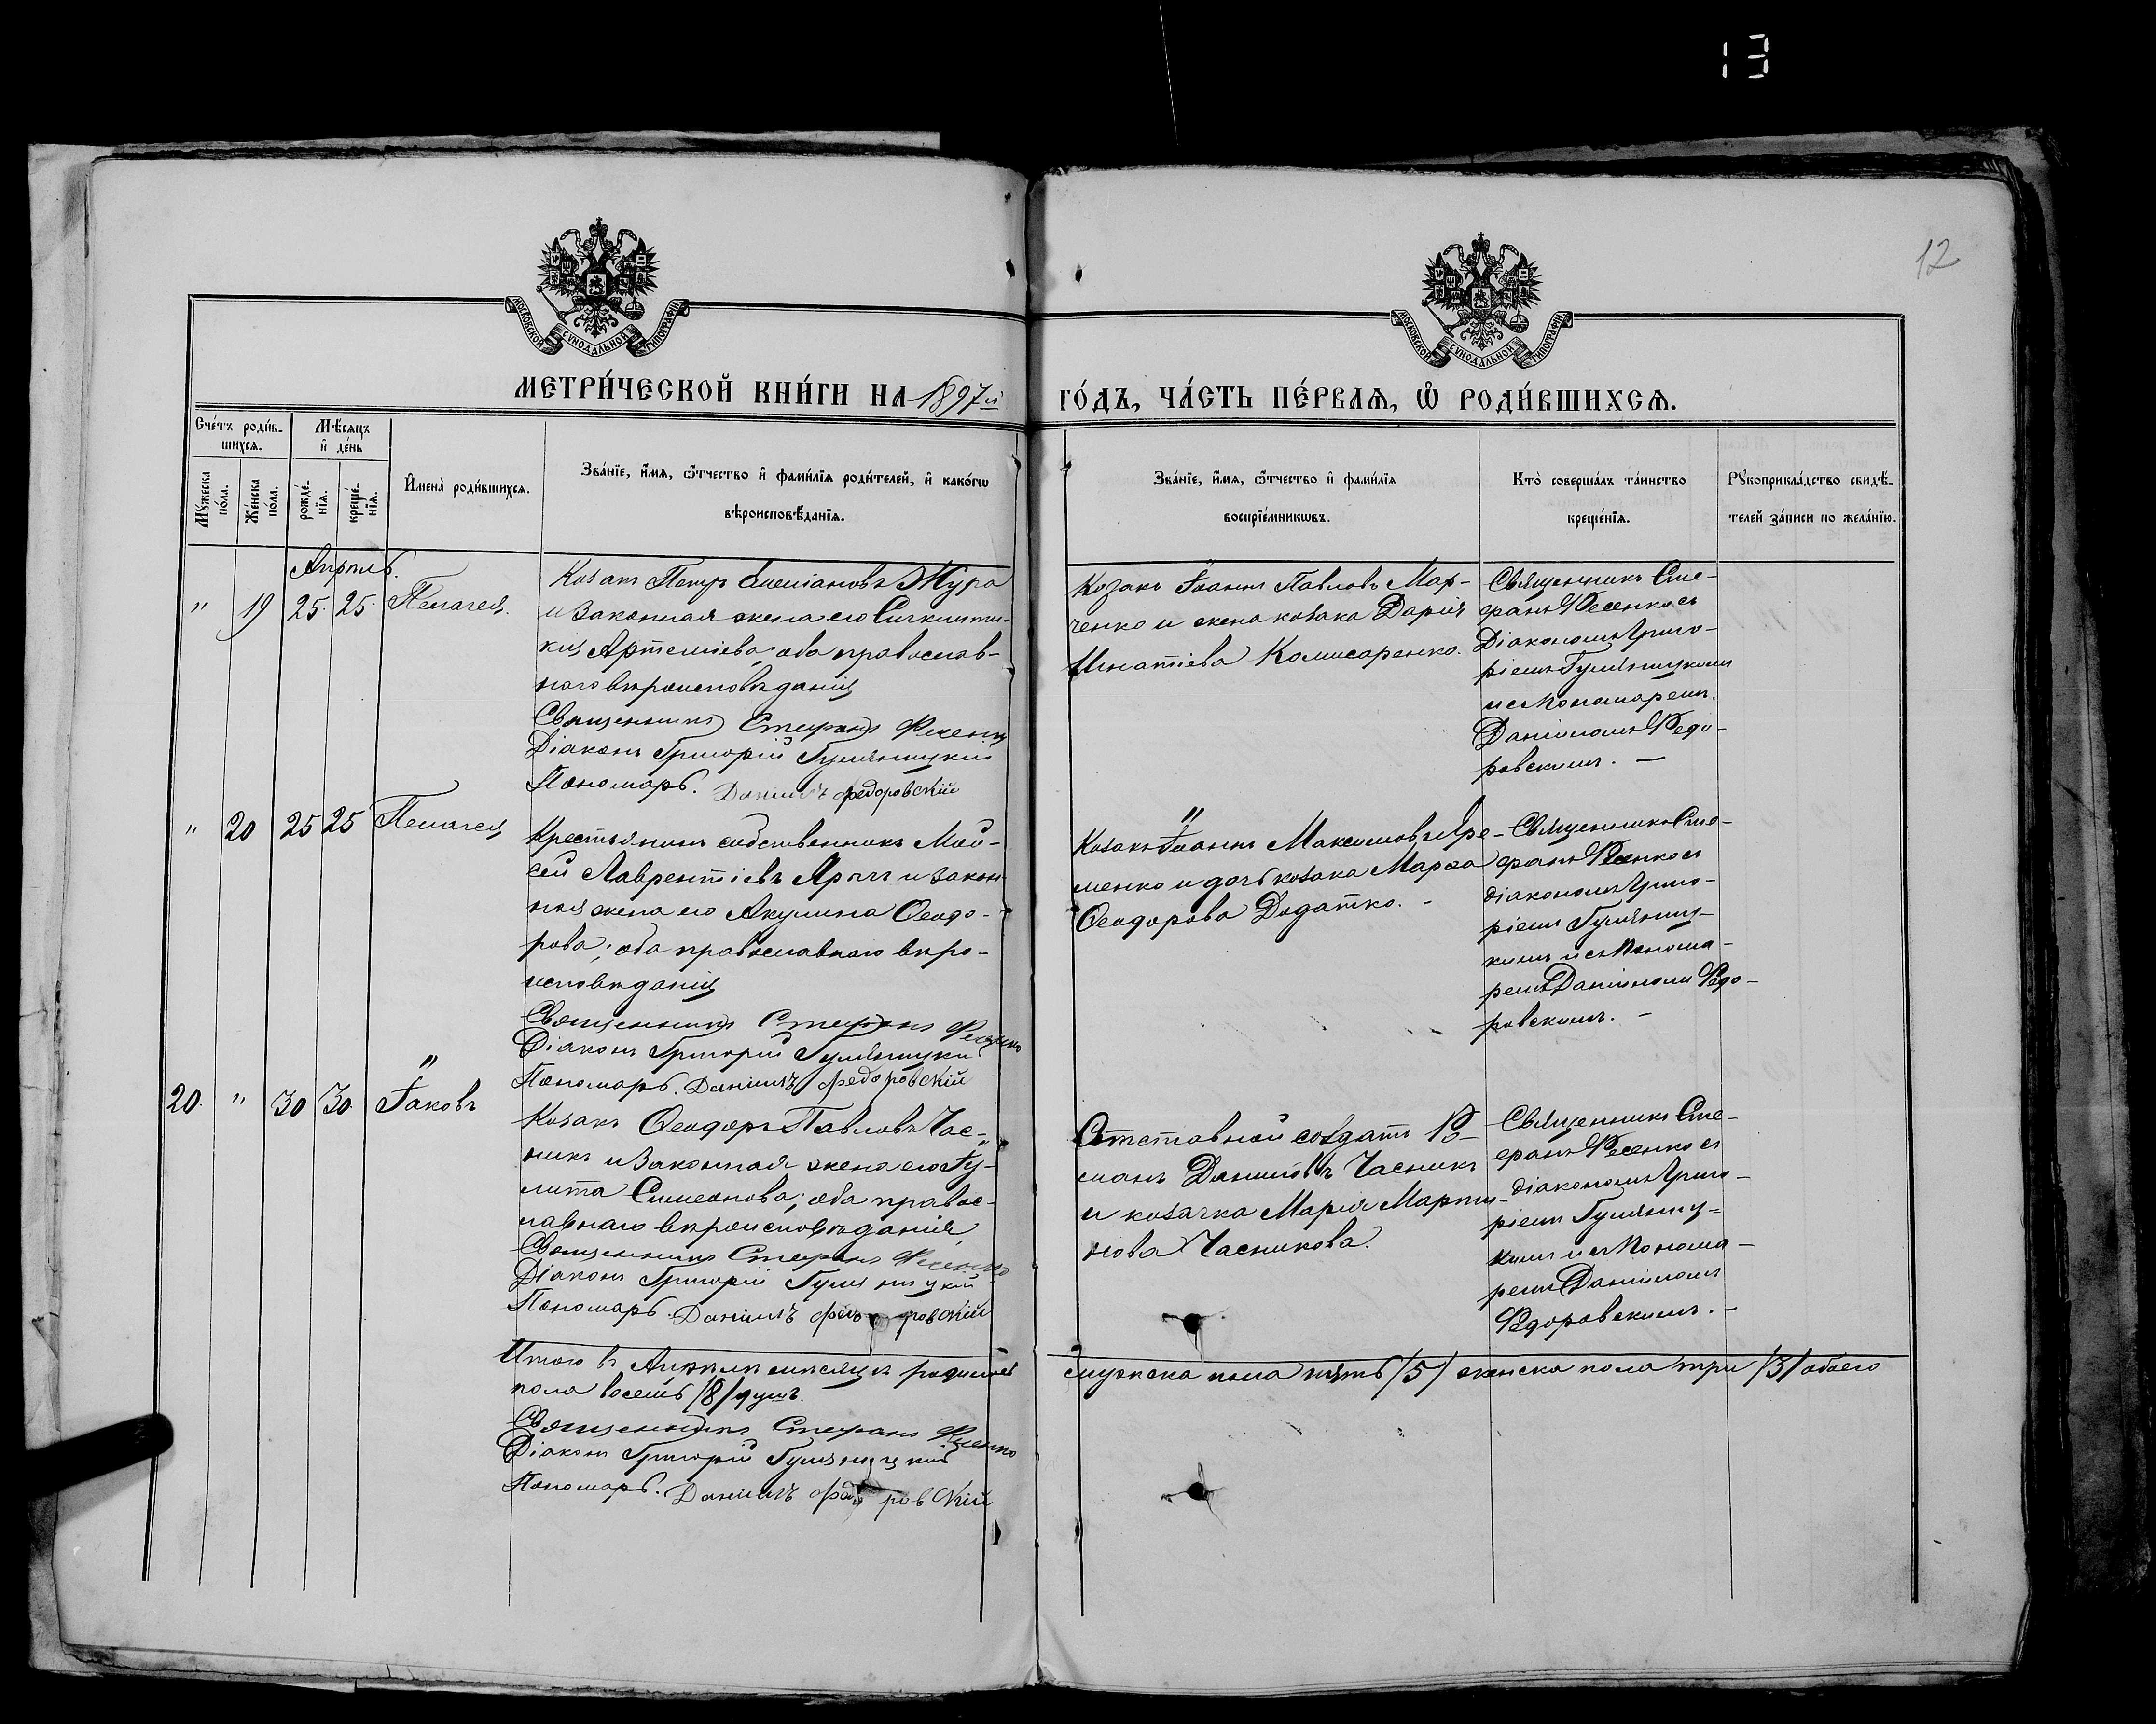 13
12
МОСКОВСКОЙ СУНОДАЛЬНОЙ ТИПОГРАФІИ
МОСКОВСКОЙ СУНОДАЛЬНОЙ ТИПОГРАФІИ
МЕТРИ́ЧЕСКОЙ КНИ́ГИ НА 1897й ГО́ДЪ, ЧА́СТЬ ПЕ́РВАЯ, Ѡ РОДИ́ВШИХСЯ.
Сче́тъ роди́в-
шихся.
Мѣ́сяцъ
и҆ де́нь
Мꙋ́жеска по́ла.
Же́нска по́ла.
рожде́-
нїя.
креще́-
нїя.
И҆мена̀ роди́вшихся.
Зва́нїе, и҆́мя, ѻ҆́тчество и҆ фами́лїя роди́телей, и҆ како́гѡ
вѣроисповѣ́данїя.
Зва́нїе, и҆́мя, ѻ҆́тчество и҆ фами́лїя
воспрїе́мникѡвъ.
Кто̀ соверша́лъ та́инство
креще́нїя.
Рꙋкоприкла́дство свидѣ́-
телей за́писи по жела́нїю.
Апрѣль.
" 19 25. 25. Пелагея.
Козакъ Петръ Симеіановъ Жура
и законная жена его Синклити-
кія Артеміева; оба православ-
наго вѣроисповѣданія
Священникъ Стефанъ Фесенко
Діаконъ Григорій Гумяницкій
Пономарь. Даніилъ Федоровскій
Козакъ Іоаннъ Павловъ Мар-
ченко и жена козака Дарія
Игнатіева Комисаренко.
Священникъ Сте-
фанъ Фесенко съ
Діакономъ Григо-
ріемъ Гумяницкимъ
и съ Пономаремъ.
Даніиломъ Федо-
ровскимъ. —
" 20 25 25 Пелагея
Крестьянинъ собственникъ Мой-
сей Лаврентіевъ Ярыгъ и закон-
ная жена его Акулина Ѳеодо-
рова; оба православнаго вѣро-
исповѣданія
Священникъ Стефанъ Фесенко
Діаконъ Григорій Гумяницкій
Пономарь. Даніилъ Федоровскій
Козакъ Іоаннъ Максимовъ Яре-
менко и дочь козака Марѳа
Ѳеодорова Додатко. -
Священникъ Сте-
фанъ Фесенко съ
діакономъ Григо-
ріемъ Гумяниц-
кимъ и съ Понома-
ремъ Даніиломъ Федо-
ровскимъ. —
20. " 30 30. Іаковъ
Козакъ Ѳеодоръ Павловъ Час-
никъ и законная жена его Іу-
лита Симеонова; оба правос-
лавнаго вѣроисповѣданія
Священникъ Стефанъ Фесенко
Діаконъ Григорій Гумяницкій
Пономарь. Даніилъ Федоровскій
Отставной солдатъ Ро-
манъ Даниловъ Часникъ
и козачка Марія Марти-
нова Часникова.
Священникъ Сте-
фанъ Фесенко съ
діакономъ Григо-
ріемъ Гумяниц-
кимъ и съ Понома-
ремъ Даніиломъ
Федоровскимъ. —
Итого въ Апрѣлѣ мѣсяцѣ родилось мужска пола пять /5/ женска пола три /3/ обоего
пола восемь /8/ душъ.
Священникъ Стефанъ Фесенко
Діаконъ Григорій Гумяницкій
Пономарь. Даніилъ Федоровскій